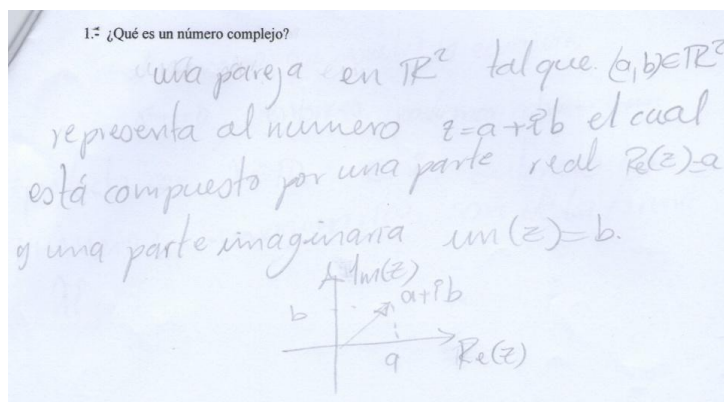 1.- ¿Qué es un número complejo?
una pareja en ℝ² tal que (a,b)∈ℝ²
representa al numero z=a+ib el cual
está compuesto por una parte real Re(z)=a
y una parte imaginaria im(z)=b.
Im(z)
a+ib
b
a
Re(z)